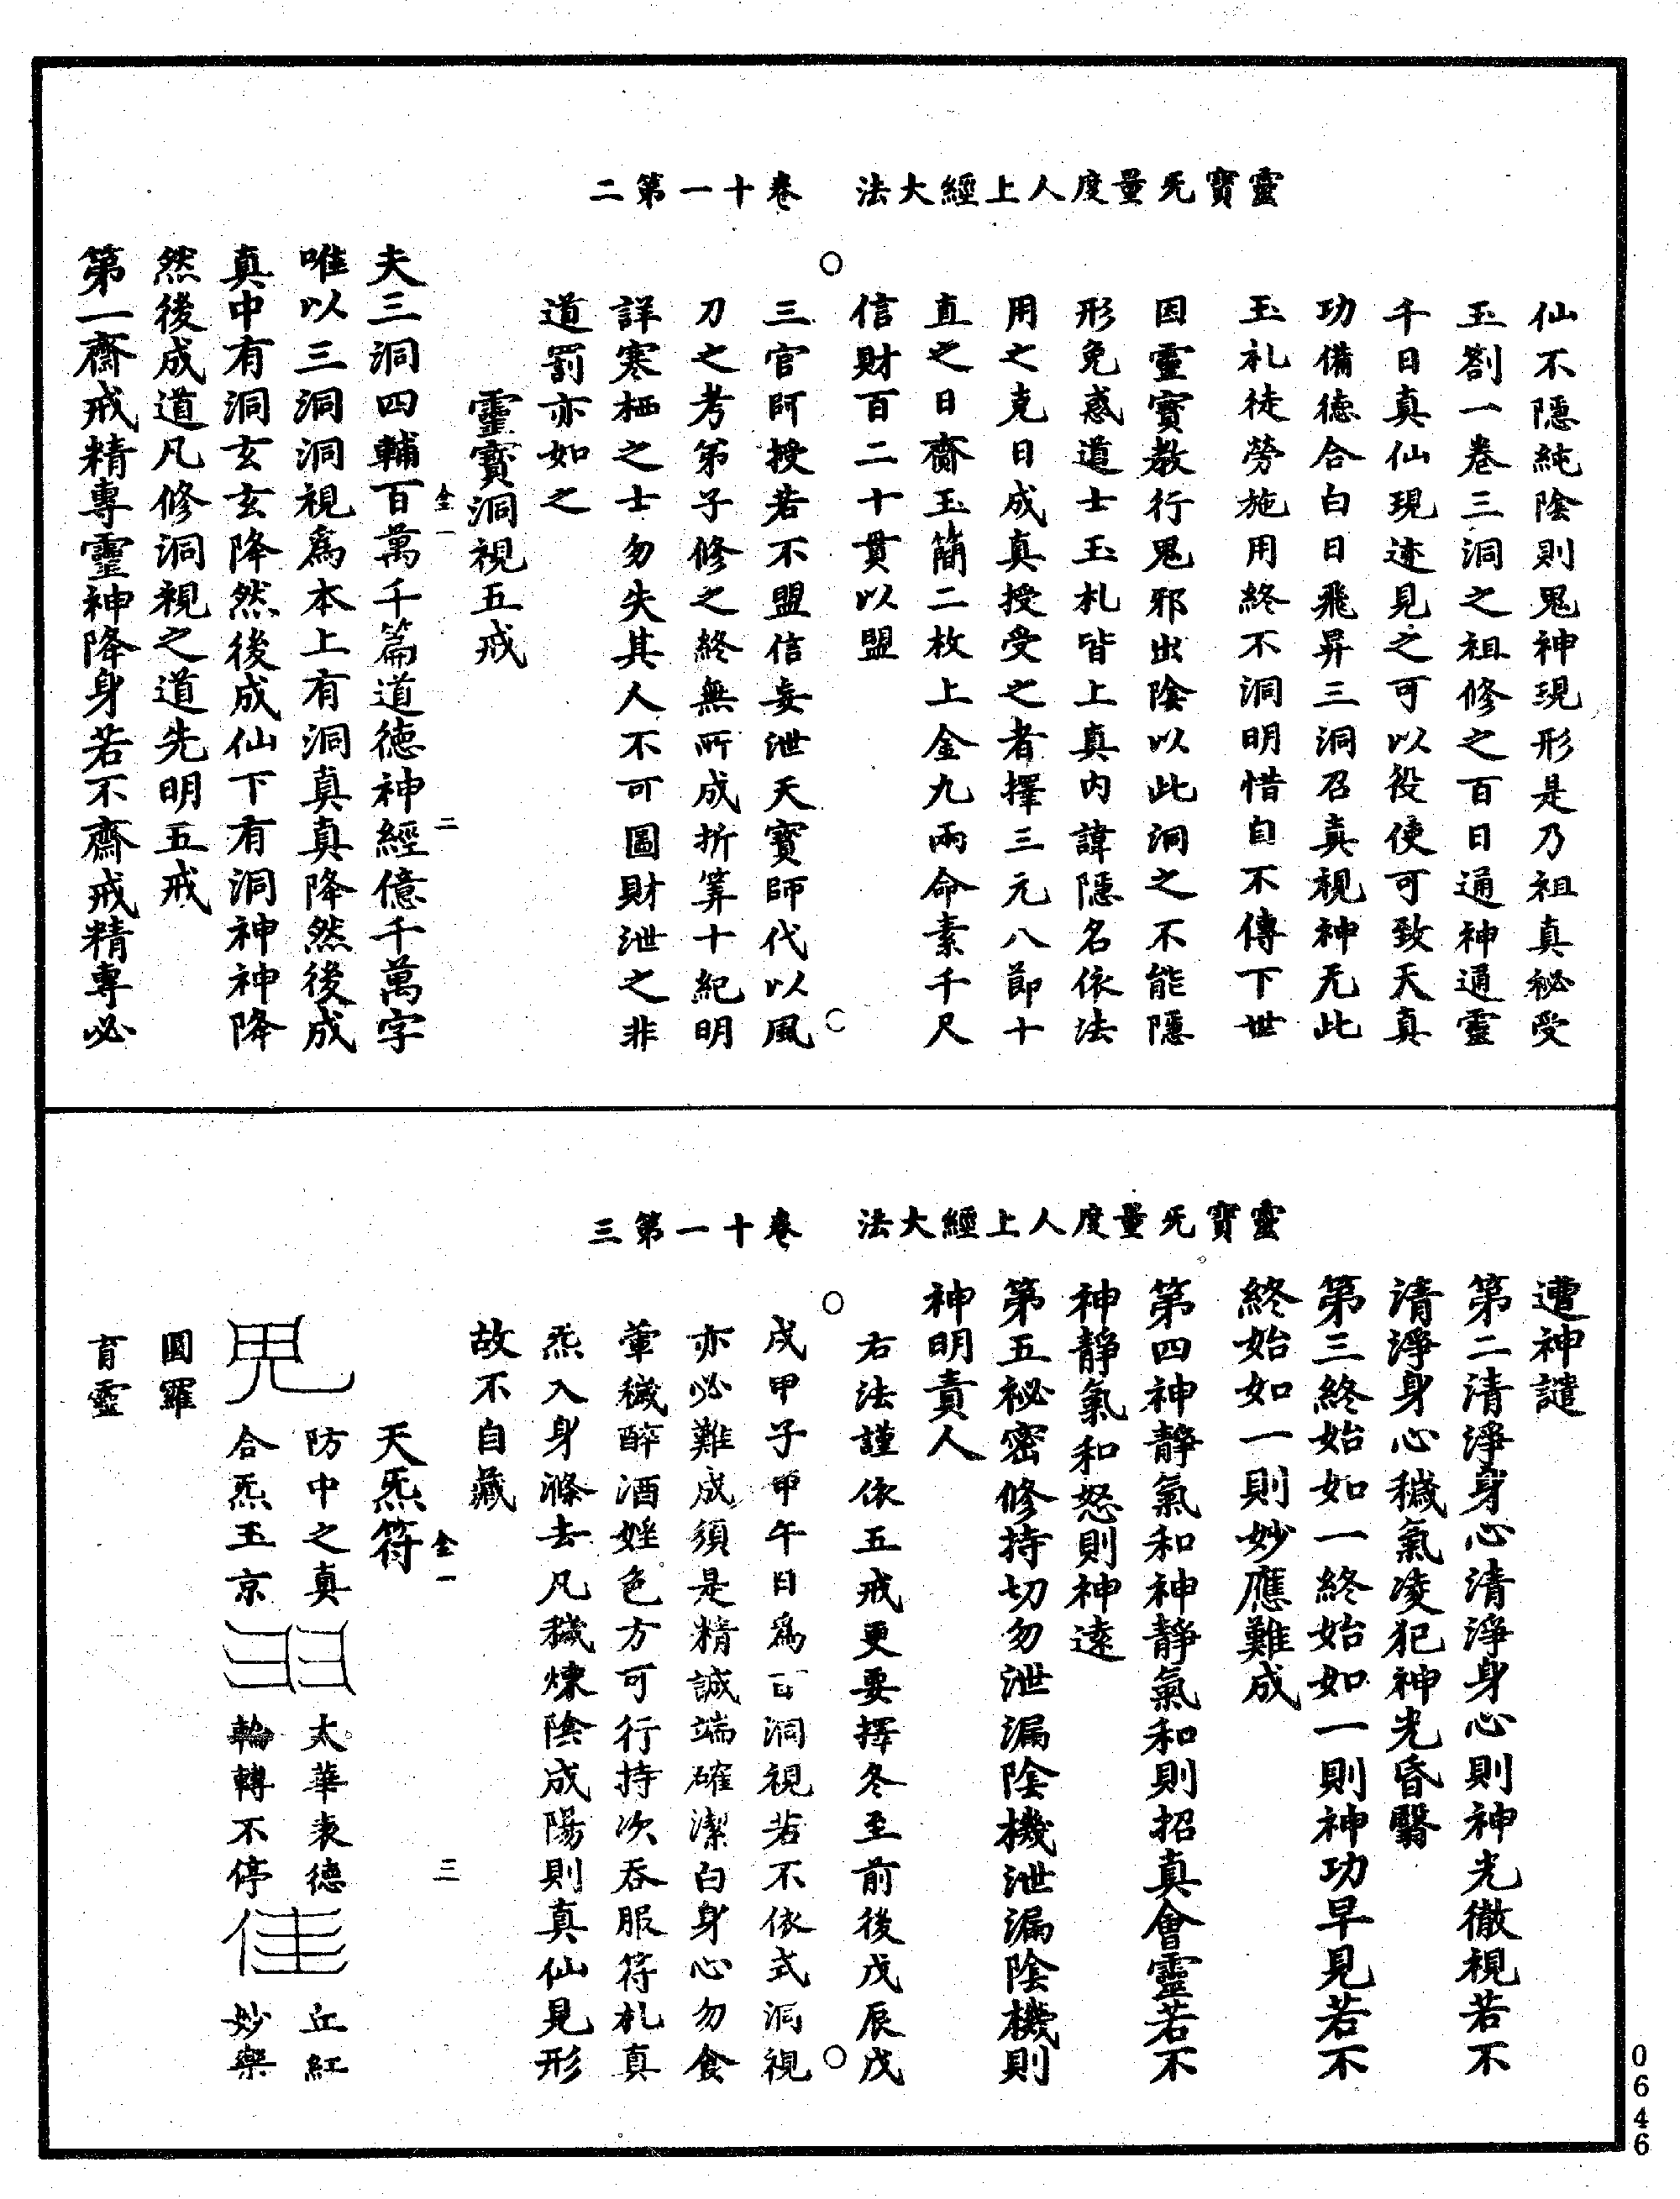 靈寶无量度人上經大法　卷十一第二
仙不隱純陰則鬼神現形是乃祖真秘受
玉劄一卷三洞之祖修之百日通神通靈
千日真仙現迹見之可以役使可致天真
功備德合白日飛昇三洞召真視神无此
玉札徒勞施用終不洞明惜自不傳下世
因靈寶教行鬼邪出陰以此洞之不能隱
形免惑道士玉札皆上真內諱隱名依法
用之克日成真授受之者擇三元八節十
直之日齋玉簡二枚上金九兩命素千尺
信財百二十貫以盟
三官師授若不盟信妄泄天寶師代以風
刀之考弟子修之終無所成折筭十紀明
詳寒栖之士勿失其人不可圖財泄之非
道罰亦如之
靈寶洞視五戒
全一　二
夫三洞四輔百萬千篇道德神經億千萬字
唯以三洞洞視為本上有洞真真降然後成
真中有洞玄玄降然後成仙下有洞神神降
然後成道凡修洞視之道先明五戒
第一齋戒精專靈神降身若不齋戒精專必
靈寶无量度人上經大法　卷十一第三
遭神譴
第二清淨身心清淨身心則神光徹視若不
清淨身心穢氣凌犯神光昏翳
第三終始如一終始如一則神功早見若不
終始如一則妙應難成
第四神靜氣和神靜氣和則招真會靈若不
神靜氣和怒則神遠
第五祕密修持切勿泄漏陰機泄漏陰機則
神明責人
右法謹依五戒更要擇冬至前後戊辰戊
戌甲子甲午日為洞視若不依式洞視
亦必難成須是精誠端確潔白身心勿食
葷穢醉酒婬色方可行持次吞服符札真
炁入身滌去凡穢煉陰成陽則真仙見形
故不自藏
全一　三
天炁符
防中之真　太華表德　丘紅
合炁玉京　輪轉不停　妙樂
圓羅
育靈
0646